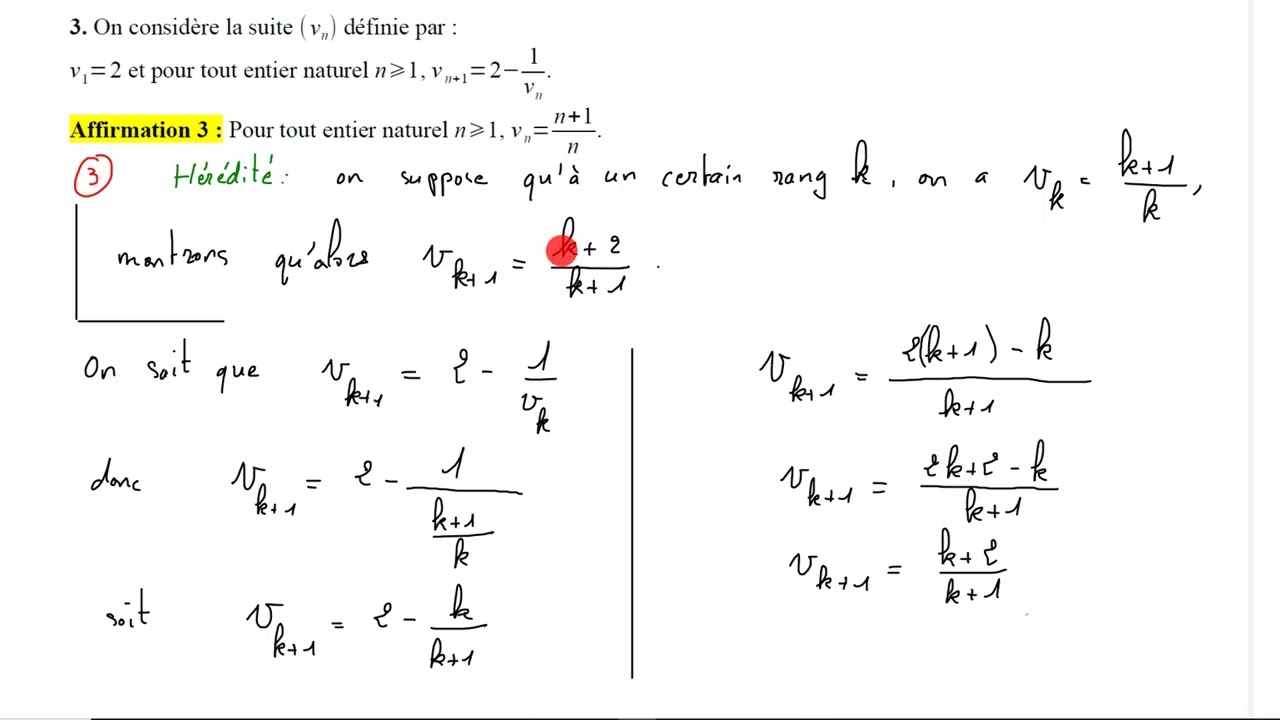 3. On considère la suite (vₙ) définie par :
v₁=2 et pour tout entier naturel n⩾1, vₙ₊₁=2−1/vₙ.
Affirmation 3 : Pour tout entier naturel n⩾1, vₙ=(n+1)/n.
③ Hérédité: on suppose qu'à un certain rang k, on a v_k = (k+1)/k,
montrons qu'alors v_{k+1} = (k+2)/(k+1).
On sait que v_{k+1} = 2 - 1/v_k
donc v_{k+1} = 2 - 1/((k+1)/k)
soit v_{k+1} = 2 - k/(k+1)
v_{k+1} = (2(k+1) - k)/(k+1)
v_{k+1} = (2k+2 - k)/(k+1)
v_{k+1} = (k+2)/(k+1)